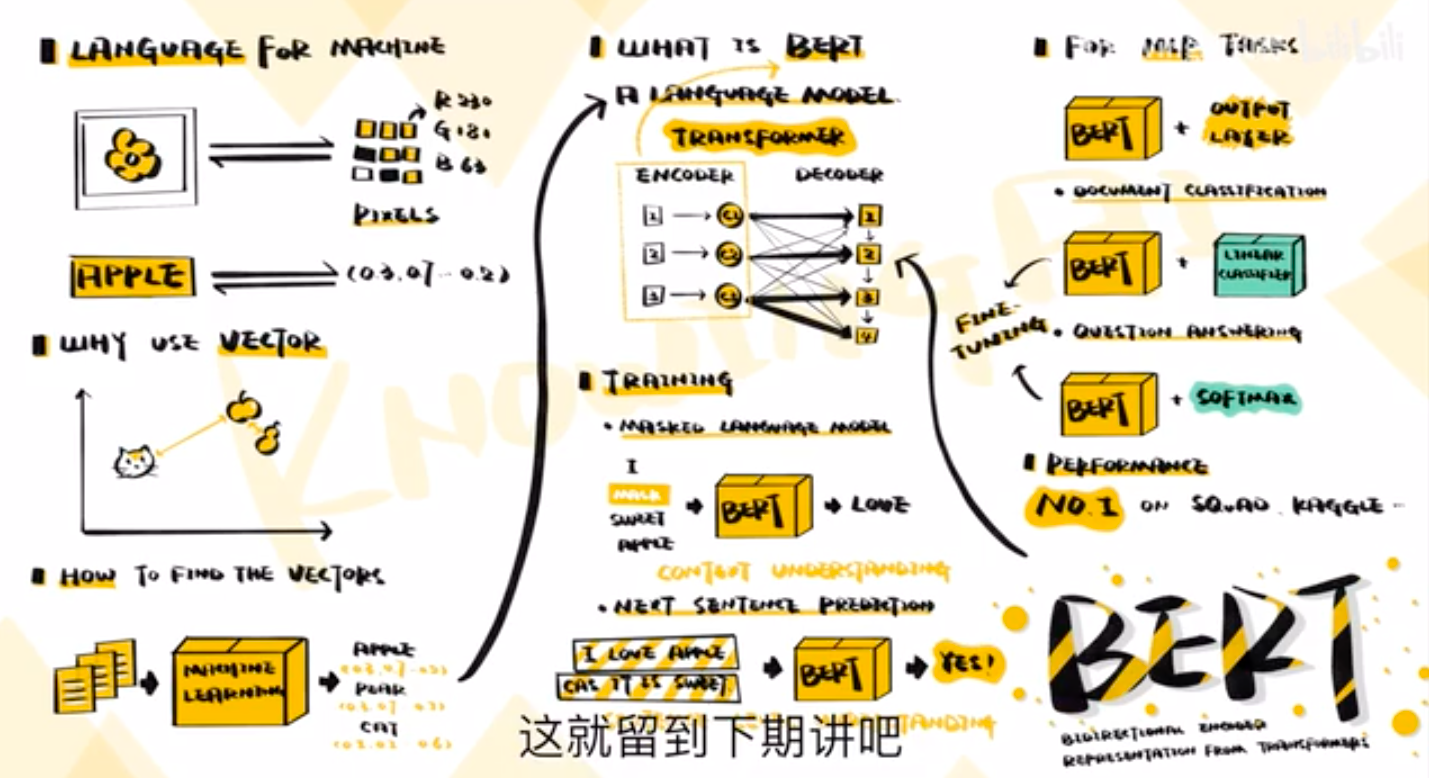 LANGUAGE FOR MACHINE
R 230
G 181
B 63
PIXELS
APPLE
WHY USE VECTOR
HOW TO FIND THE VECTORS
MACHINE
LEARNING
APPLE
PEAR
CAT
WHAT IS BERT
A LANGUAGE MODEL
TRANSFORMER
ENCODER
DECODER
1
C1
1
2
C2
2
3
C3
3
4
TRAINING
MASKED LANGUAGE MODEL
I
MASK
SWEET
APPLE
BERT
LOVE
CONTEXT UNDERSTANDING
NEXT SENTENCE PREDICTION
I LOVE APPLE
IT IS SWEET
BERT
YES!
这就留到下期讲吧
FOR NLP TASKS
bilibili
BERT
+
OUTPUT
LAYER
DOCUMENT CLASSIFICATION
BERT
+
LINEAR
CLASSIFIER
FINE-
TUNING
QUESTION ANSWERING
BERT
+
SOFTMAX
PERFORMANCE
NO.1 ON SQUAD. KAGGLE
BERT
BIDIRECTIONAL ENCODER
REPRESENTATION FROM TRANSFORMERS